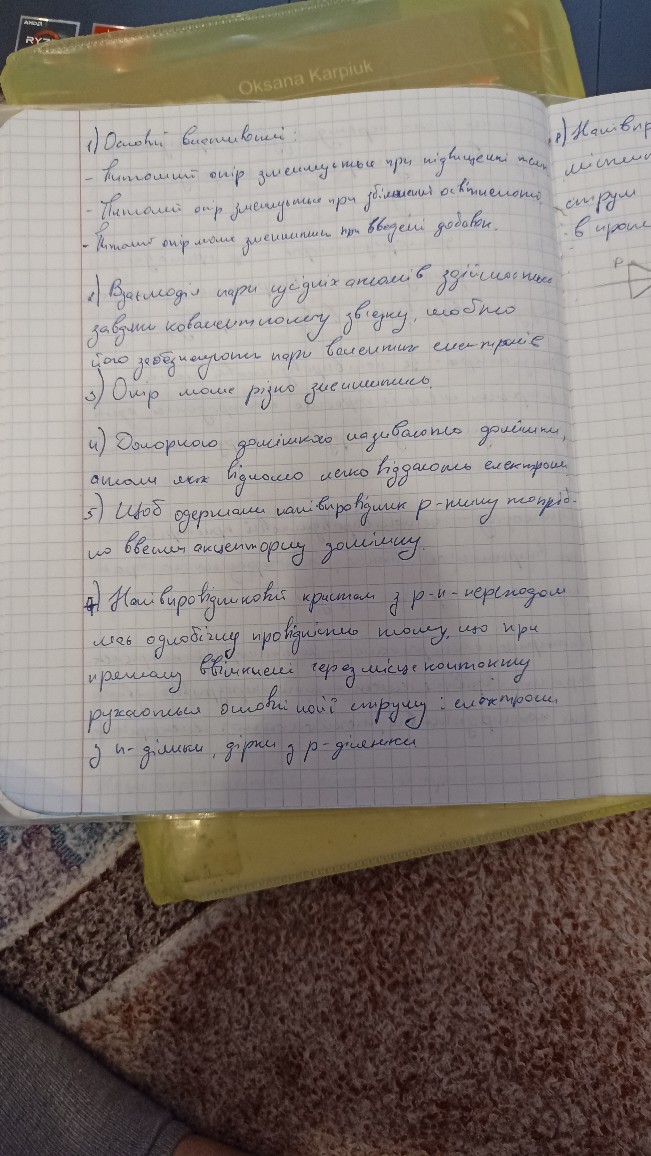 AMD
RYZ
Oksana Karpiuk
1) Основні властивості:
- Питомий опір зменшується при підвищенні темп
- Питомий опір зменшується при збільшенні освітленості
- Питомий опір може зменшитись при введені добавок.
2) Взаємодія пари сусідніх атомів здійснюється
завдяки ковалентному зв'язку, тобто
його забезпечують пари валентних електронів
3) Опір може різко зменшитись.
4) Донорною домішкою називають домішки,
атоми яких відносно легко віддають електрони
5) Щоб одержати напівпровідник p-типу потріб-
но ввести акцепторну домішку.
7) Напівпровідниковий кристал з p-n-переходом
має однобічну провідність тому, що при
прямому ввімкнені через місце контакту
рухаються основні носії струму: електрони
з n-ділянки, дірки з p-ділянки
8) Напівпр
струм
P